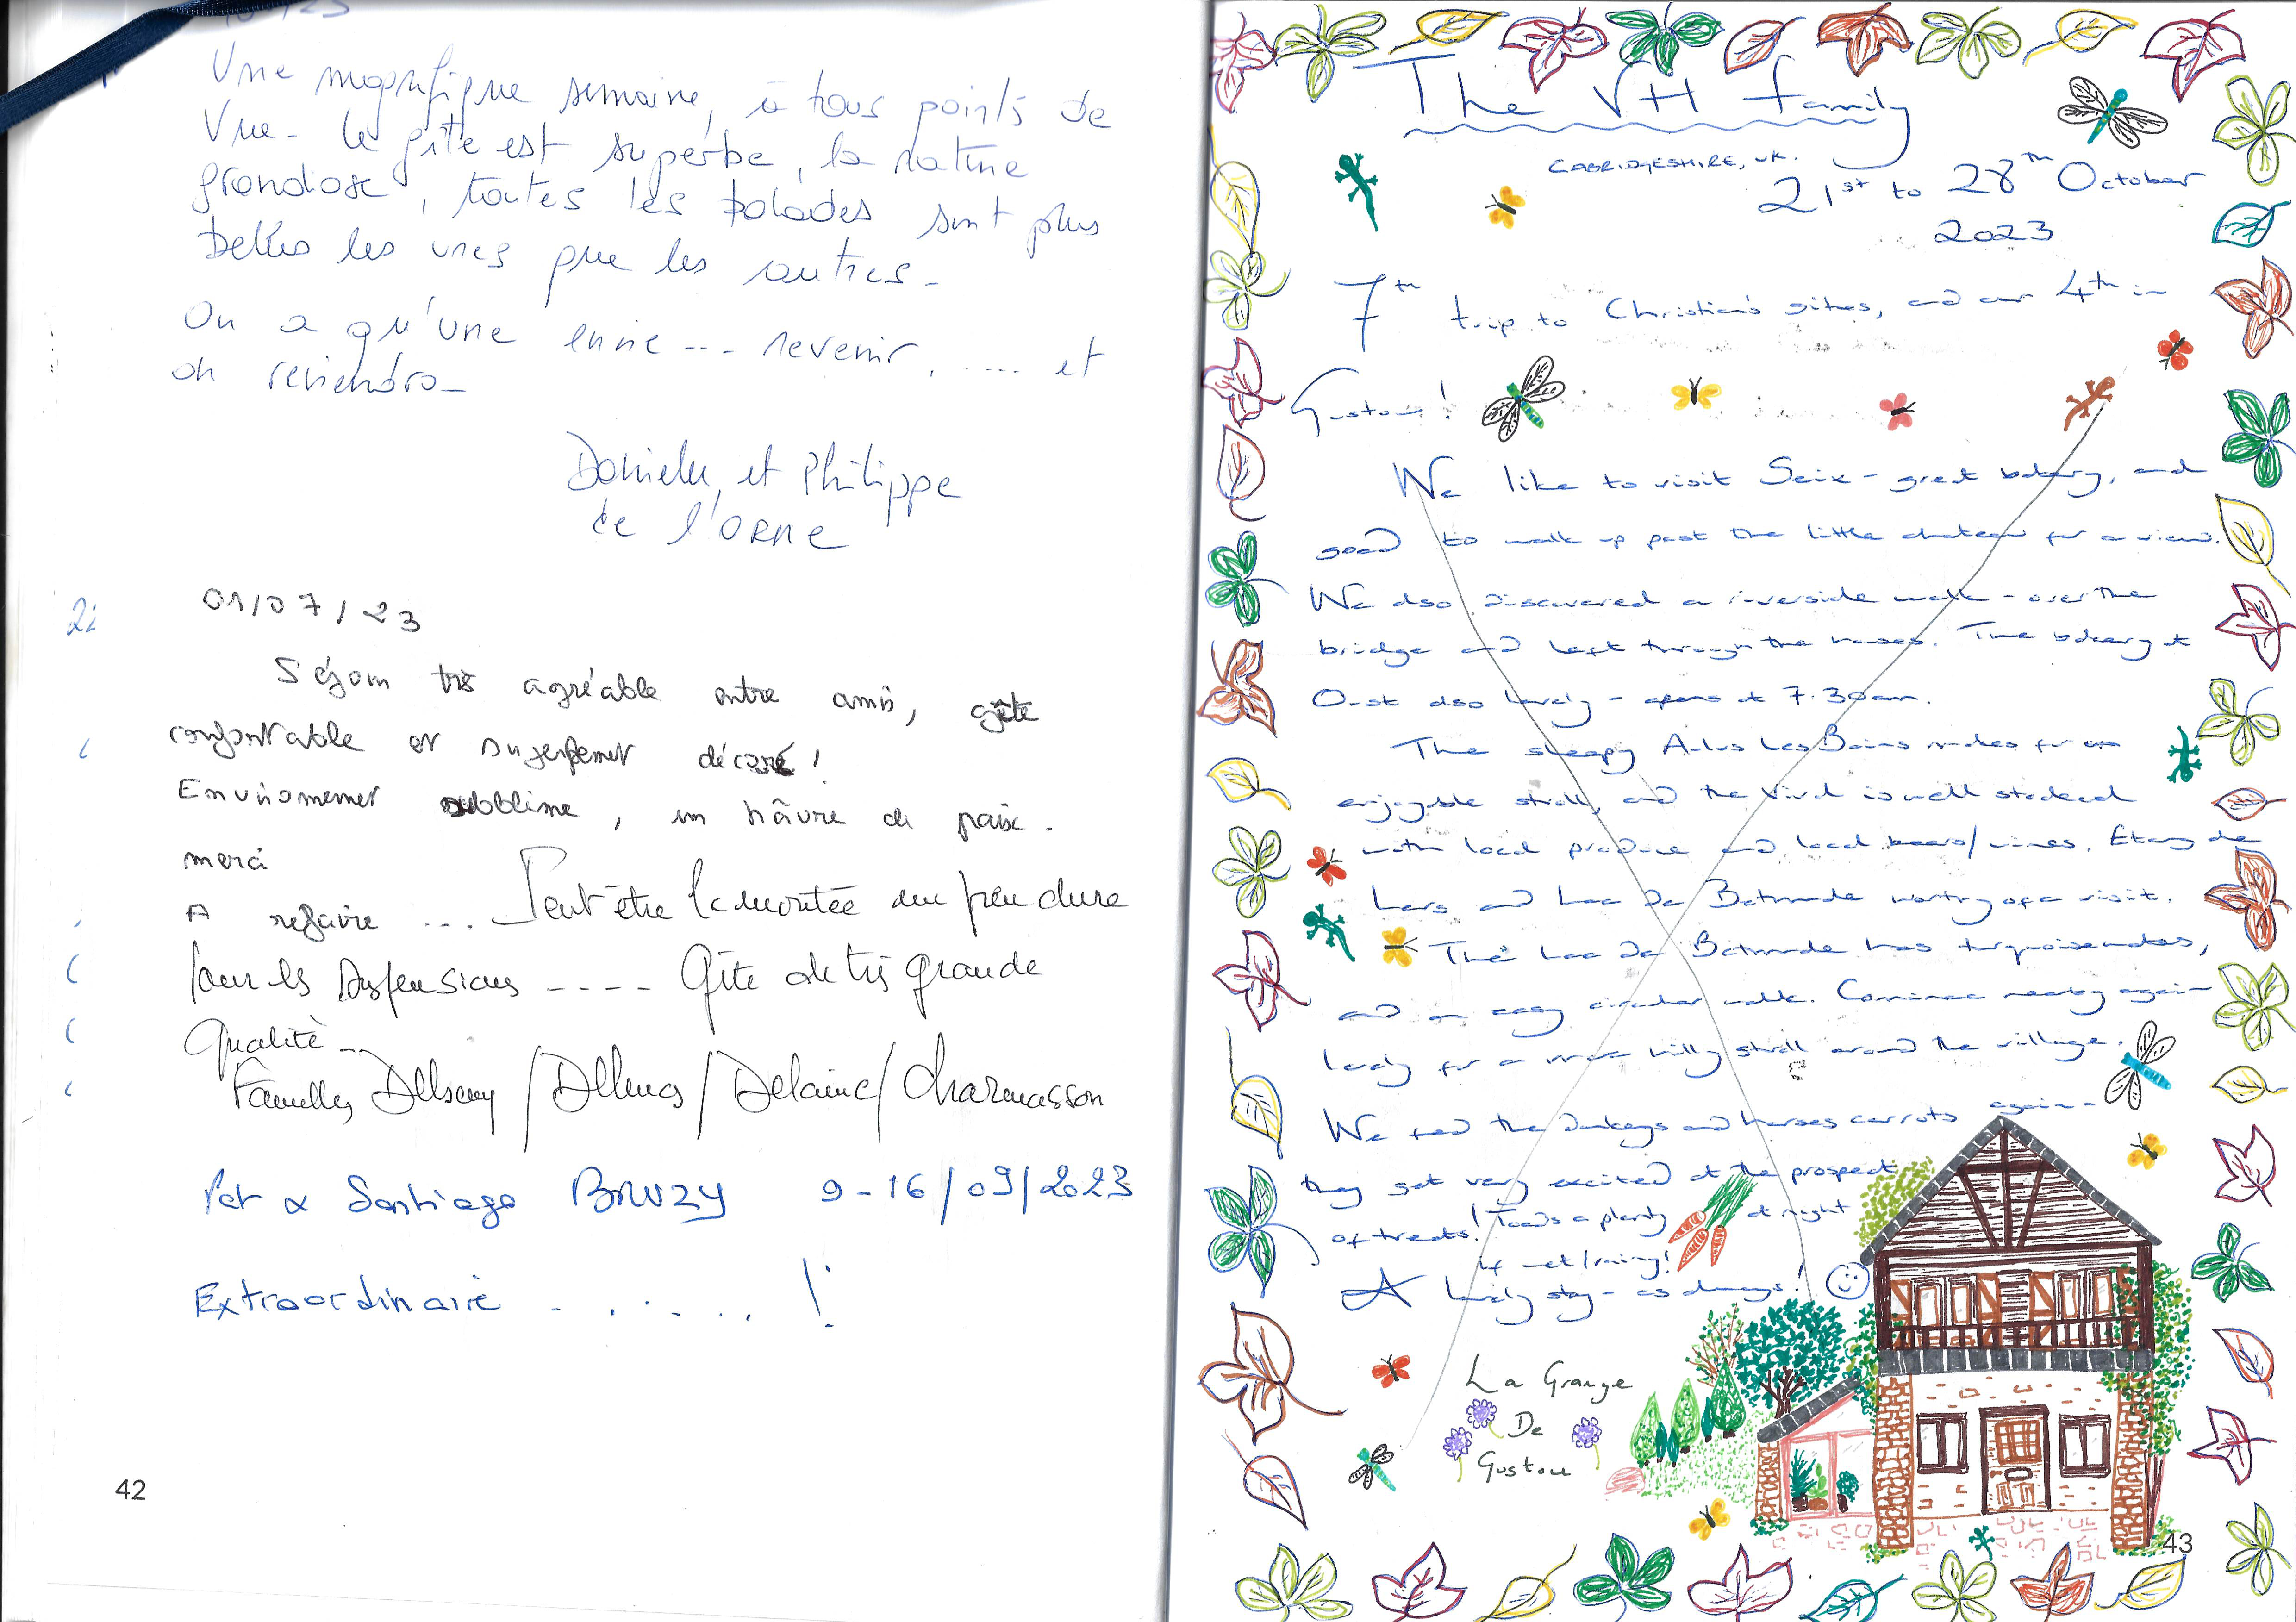 Une magnifique semaine, à tous points de
Vue - le gîte est superbe, la nature
grandiose, toutes les balades sont plus
belles les unes que les autres -
On a qu'une envie --- revenir, ..... et
on reviendra -
et Philippe
de l'ORNE
01/07/23
Séjour très agréable entre amis, gîte
confortable et décoré !
Environnement sublime, un hâvre de paix.
merci
A refaire ... Peut-être la montée un peu dure
pour les suspensions ---- Gîte de très grande
Qualité --
Familles / / Delaine / Charmasson
Pat & Santiago BRUZY 9-16/09/2023
Extraordinaire - . . . . . !
42
The VH family
CABRIDGESHIRE, UK.
21st to 28th October
2023
7th trip to Christian's gites, and our 4th in
Gustou!
We like to visit Seix - great bakery, and
good to walk up past the little chateau for a view.
We also discovered a riverside walk - over the
bridge and left through the houses. The bakery at
Oust also lovely - opens at 7.30am.
The sleepy Aulus Les Bains makes for an
enjoyable stroll, and the Vival is well stocked
with local produce and local beers/wines. Etang de
Lers and Lac De Bethmale worthy of a visit.
The Lac De Bethmale has turquoise waters,
and an easy circular walk. Cominac nearby again
lovely for a more hilly stroll around the village.
We fed the donkeys and horses carrots again -
they get very excited at the prospect
of treats! Toads a plenty at night
if wet/rainy!
A lovely stay - as always!
La Grange
De
Gustou
43